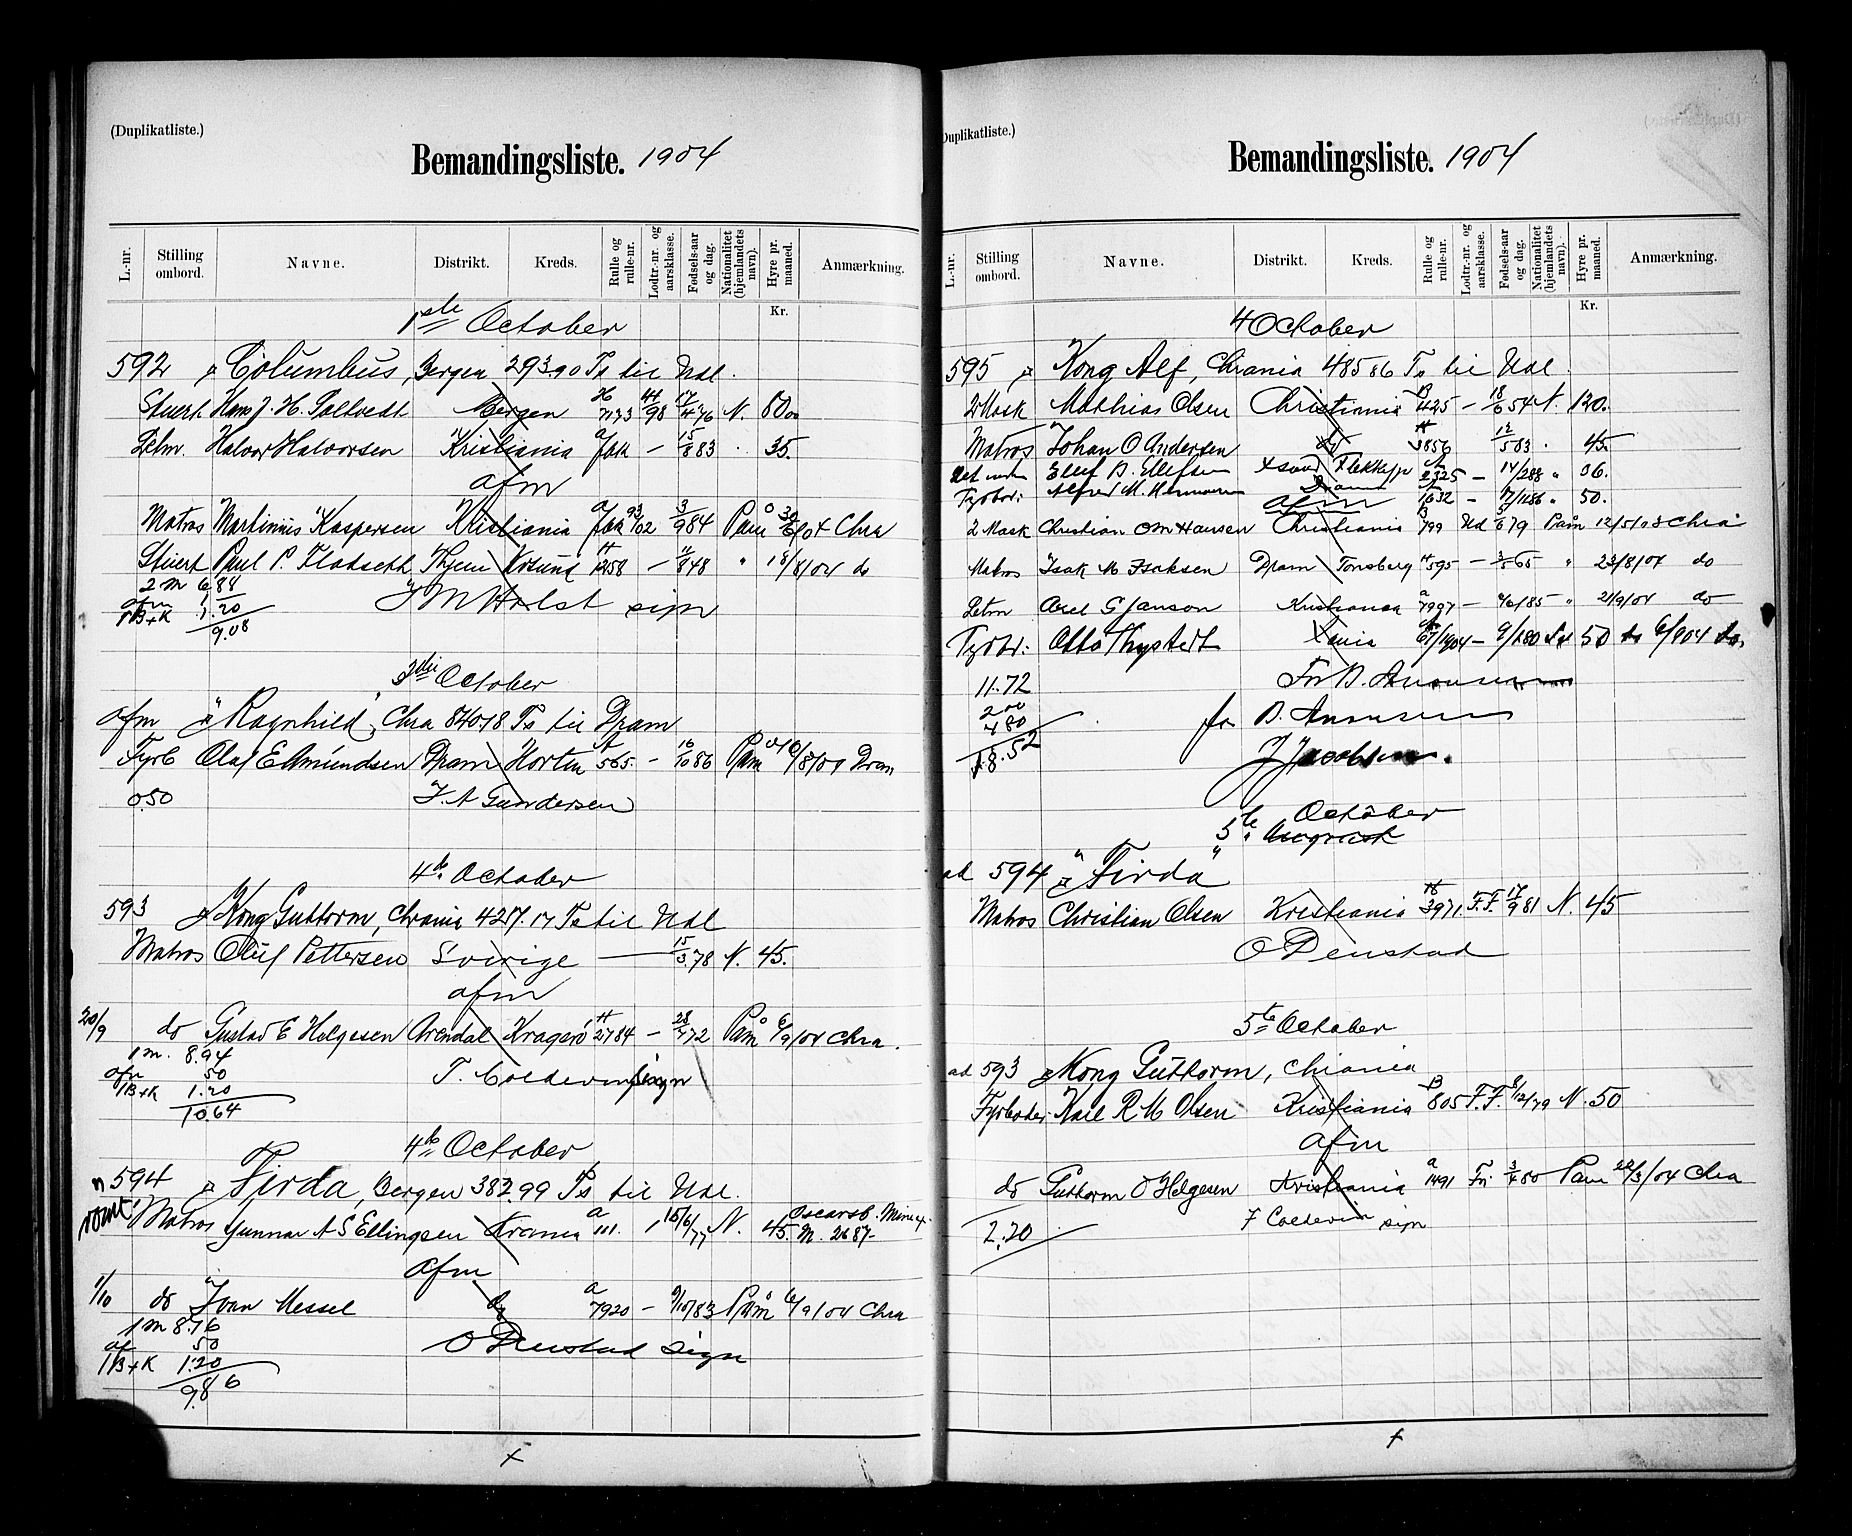 (Duplikatliste.)
Bemandingsliste. 1904
L.-nr. Stilling ombord. Navne. Distrikt. Kreds. Rulle og rulle-nr. Lodtr.-nr. og aarsklasse. Fødsels-aar og dag. Nationalitet (hjemlandets navn). Hyre pr. maaned. Anmærkning.
Kr.
1ste October
592 Columbus, Bergen 293.90 Ts til Udl.
Stuert Hans J. H. Bergen 7133 44/98 17/4 76 N. 80 00
Letm. Halvor Halvorsen Kristiania a/ - 15/8 83 35.
afm
Matros Martinius Kaspersen Kristiania a/ 93/02 3/9 84 Paam 30/6/04 Chra
Stuert Paul P. 1258 - /8 48 " 18/8/04 do
2 m 6.88
afm 1
1B+K 1.20
9.08
J M Holst sign
3die October
afm "Ragnhild", Chra 840.18 Ts til Dram
Fyrb Olaf E Amundsen Dram Horten 565. - 16/10 86 Paam 16/8/04 Dram
0.50 J. A Gundersen
4de October
593 Kong Guttorm, Chrania 427.17 Ts til Udl
Matros Oluf Pettersen Sverige — 15/3 78 N. 45.
afm
20/9 do Gustad E Helgesen Arendal Kragerø 2784 - 28/7 72 Paam 6/9/04 Chra.
1 m. 8.94
afm 50
1B+K 1.20
10.64
T. Coldevin sign
4de October
594 Firda, Bergen 382.99 Ts til Udl.
Matros Gunnar A S Ellingsen Krania a/111. 1 15/6/77 N. 45. Oscarsb. Minex. M. 2687
afm
1/10 do Ivan Messel do a/7920 - 9/10/83 Paam 6/9/04 Chra
1 m 8.16
af 50
1B+K 1.20
9.86
O Denstad sign
+
Duplikatliste.)
Bemandingsliste. 1904
L.-nr. Stilling ombord. Navne. Distrikt. Kreds. Rulle og rulle-nr. Lodtr.-nr. og aarsklasse. Fødsels-aar og dag. Nationalitet (hjemlandets navn). Hyre pr. maaned. Anmærkning.
Kr.
4 October
595 Kong Alf, Chrania 485.86 Ts til Udl
2 Mask Mathias Olsen Christiania B/425 - 18/6 54 N. 120.
Matros Johan O Andersen do 3856 12/5 83 . 45.
Ellef B. Ellefsen Flekkefj 2325 - 14/288 "
Fyrbøt: Alfred M. Dram 1632 - 17/1186 " 50.
afm
2 Mask Christian O M Hansen Christiania B/799 Ud 5/6 79 Paam 12/5/03 Chra
Matros Isak M Isaksen Dram Tønsberg 595 - 3/5 65 " 23/8/04 do
Letm Axel G Janson Kristiania a/7997 - 4/6/85 " 21/9/04 do
Fyrbø: Otto Thystedt Xania 67/1904 - 9/1280 50 6/904 do
11.72
2 00
4 80
18.52
for B.
J Jacobsen.
October
5te
ad 594 "Firda"
Matros Christian Olsen Kristiania 3971. F.F. 17/9 81 N. 45
O Denstad
5te October
ad 593 Kong Guttorm, Chrania
Fyrbøder Karl R M Olsen Kristiania B/805 F.F. 8/12/79 N. 50
afm
do Guttorm O Helgesen Kristiania a/1491 Fri 3/7 80 Paam 22/3/04 Chra
2.20
F Coldevin sign
+